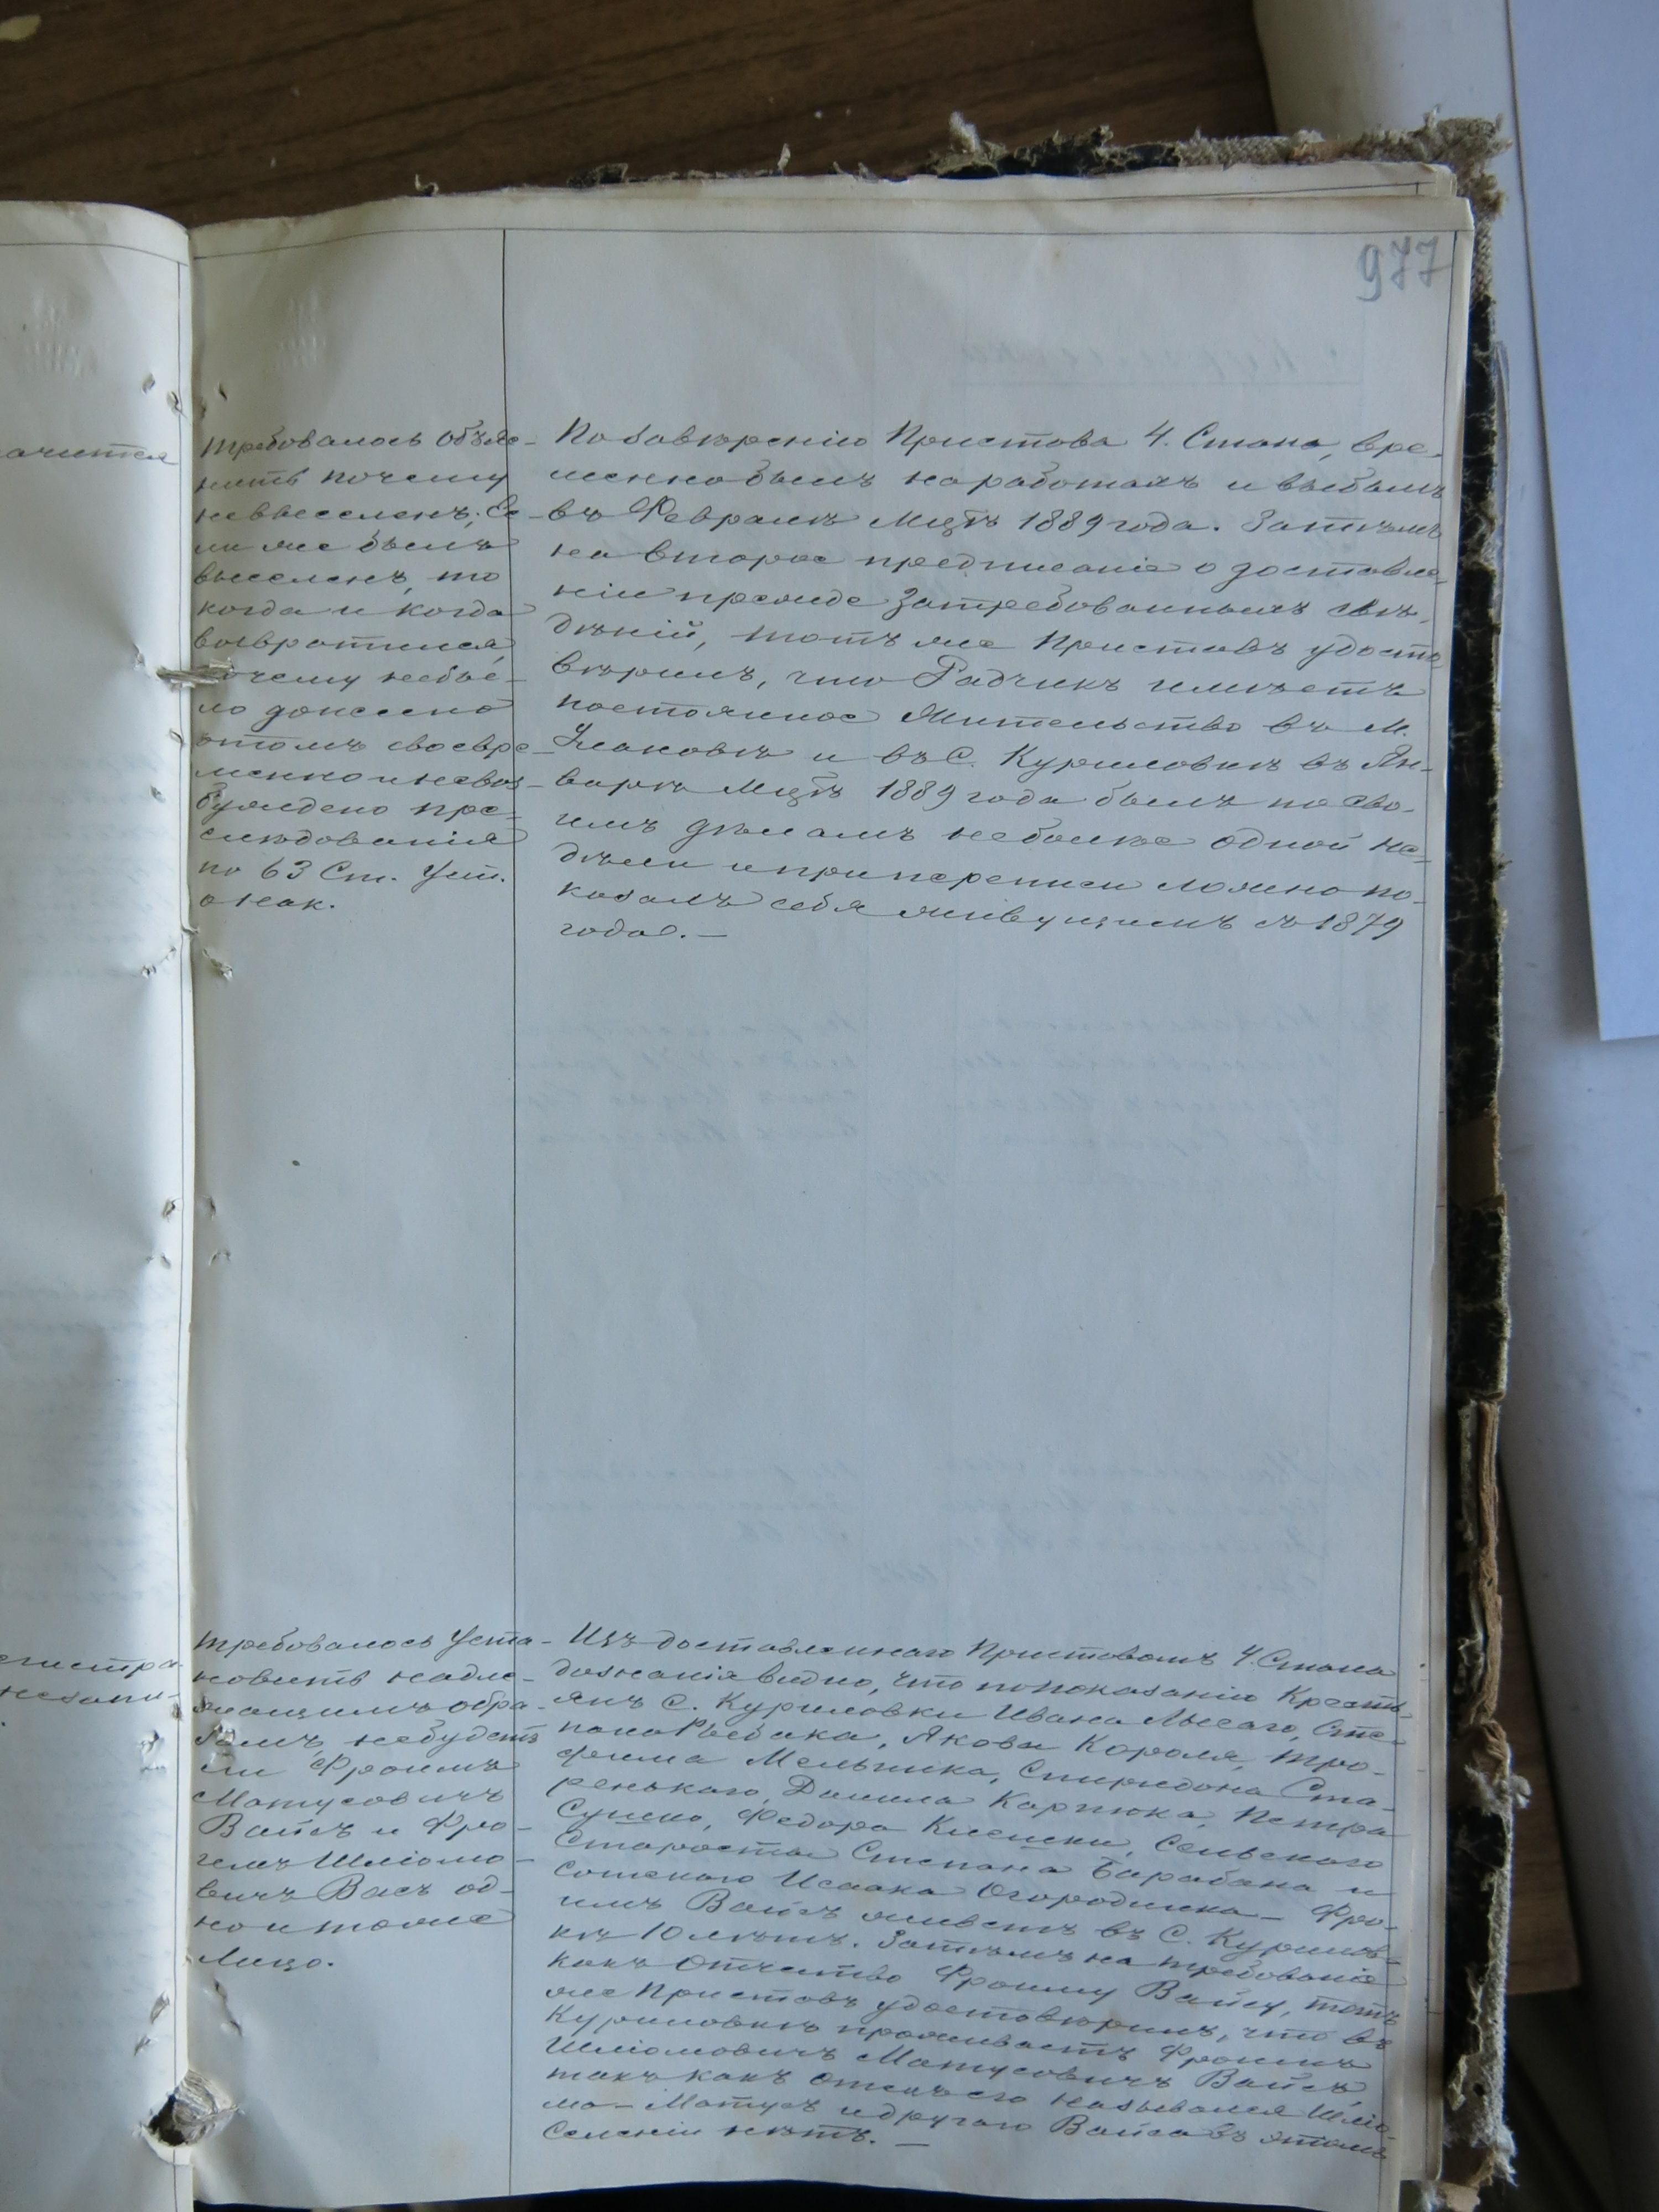 977
ачится
требовалось объяс-
нить почему
невыселенъ; Ес-
ли же былъ
выселенъ, то
когда и когда
возвратился,
почему небы-
ло донесено
этомъ своевре-
менно и невоз-
буждено пре-
слѣдованія
по 63 Ст. Уст.
о нак.
По завѣренію Пристова 4. Стана, вре-
менно былъ на работахъ и выбылъ
въ Февралѣ Мцѣ 1889 года. Затѣмъ
на второе предписаніе о доставле-
ніи прежде затребованныхъ свѣ-
дѣній, тотъ же Приставъ удосто-
вѣрилъ, что Радчикъ имѣетъ
постоянное жительство въ М.
и въ С. Куриловкѣ въ Ян-
варѣ Мцѣ 1889 года былъ по сво-
имъ дѣламъ не болѣе одной не-
дѣли и при переписи ложно по-
казалъ себя живущимъ съ 1879
года. —
егистра-
незапи-
требовалось уста-
новить надле-
жащимъ обра-
зомъ, небудетъ
ли Фроимъ
Матусовичъ
Вайсъ и Фро-
имъ Шліомо-
вичъ Васъ од-
но и тоже
лицо.
Изъ доставленнаго Приставомъ 4. Стана
дознанія видно, что по показанію Кресть-
янъ С. Куриловки Ивана Лысаго, Сте-
пана Рыбака, Якова Короля, Тро-
фима Мельника, Спиридона Ста-
ренькаго, Данила Карпюка, Петра
Федора Сельскаго
Старосты Степана Барабана и
Сотскаго Исаака Огородника — Фро-
имъ Вайсъ живетъ въ С. Курилов-
кѣ 10 лѣтъ. Затѣмъ на требованіе
какъ отчество Фроиму Вайсу, тотъ
же Приставъ удостовѣрилъ, что въ
Куриловкѣ проживаетъ Фроимъ
Шліомовичъ Матусовичъ Вайсъ,
такъ какъ отецъ его назывался Шліо-
мо-Матусъ и другаго Вайса въ этомъ
селеніи нѣтъ. —